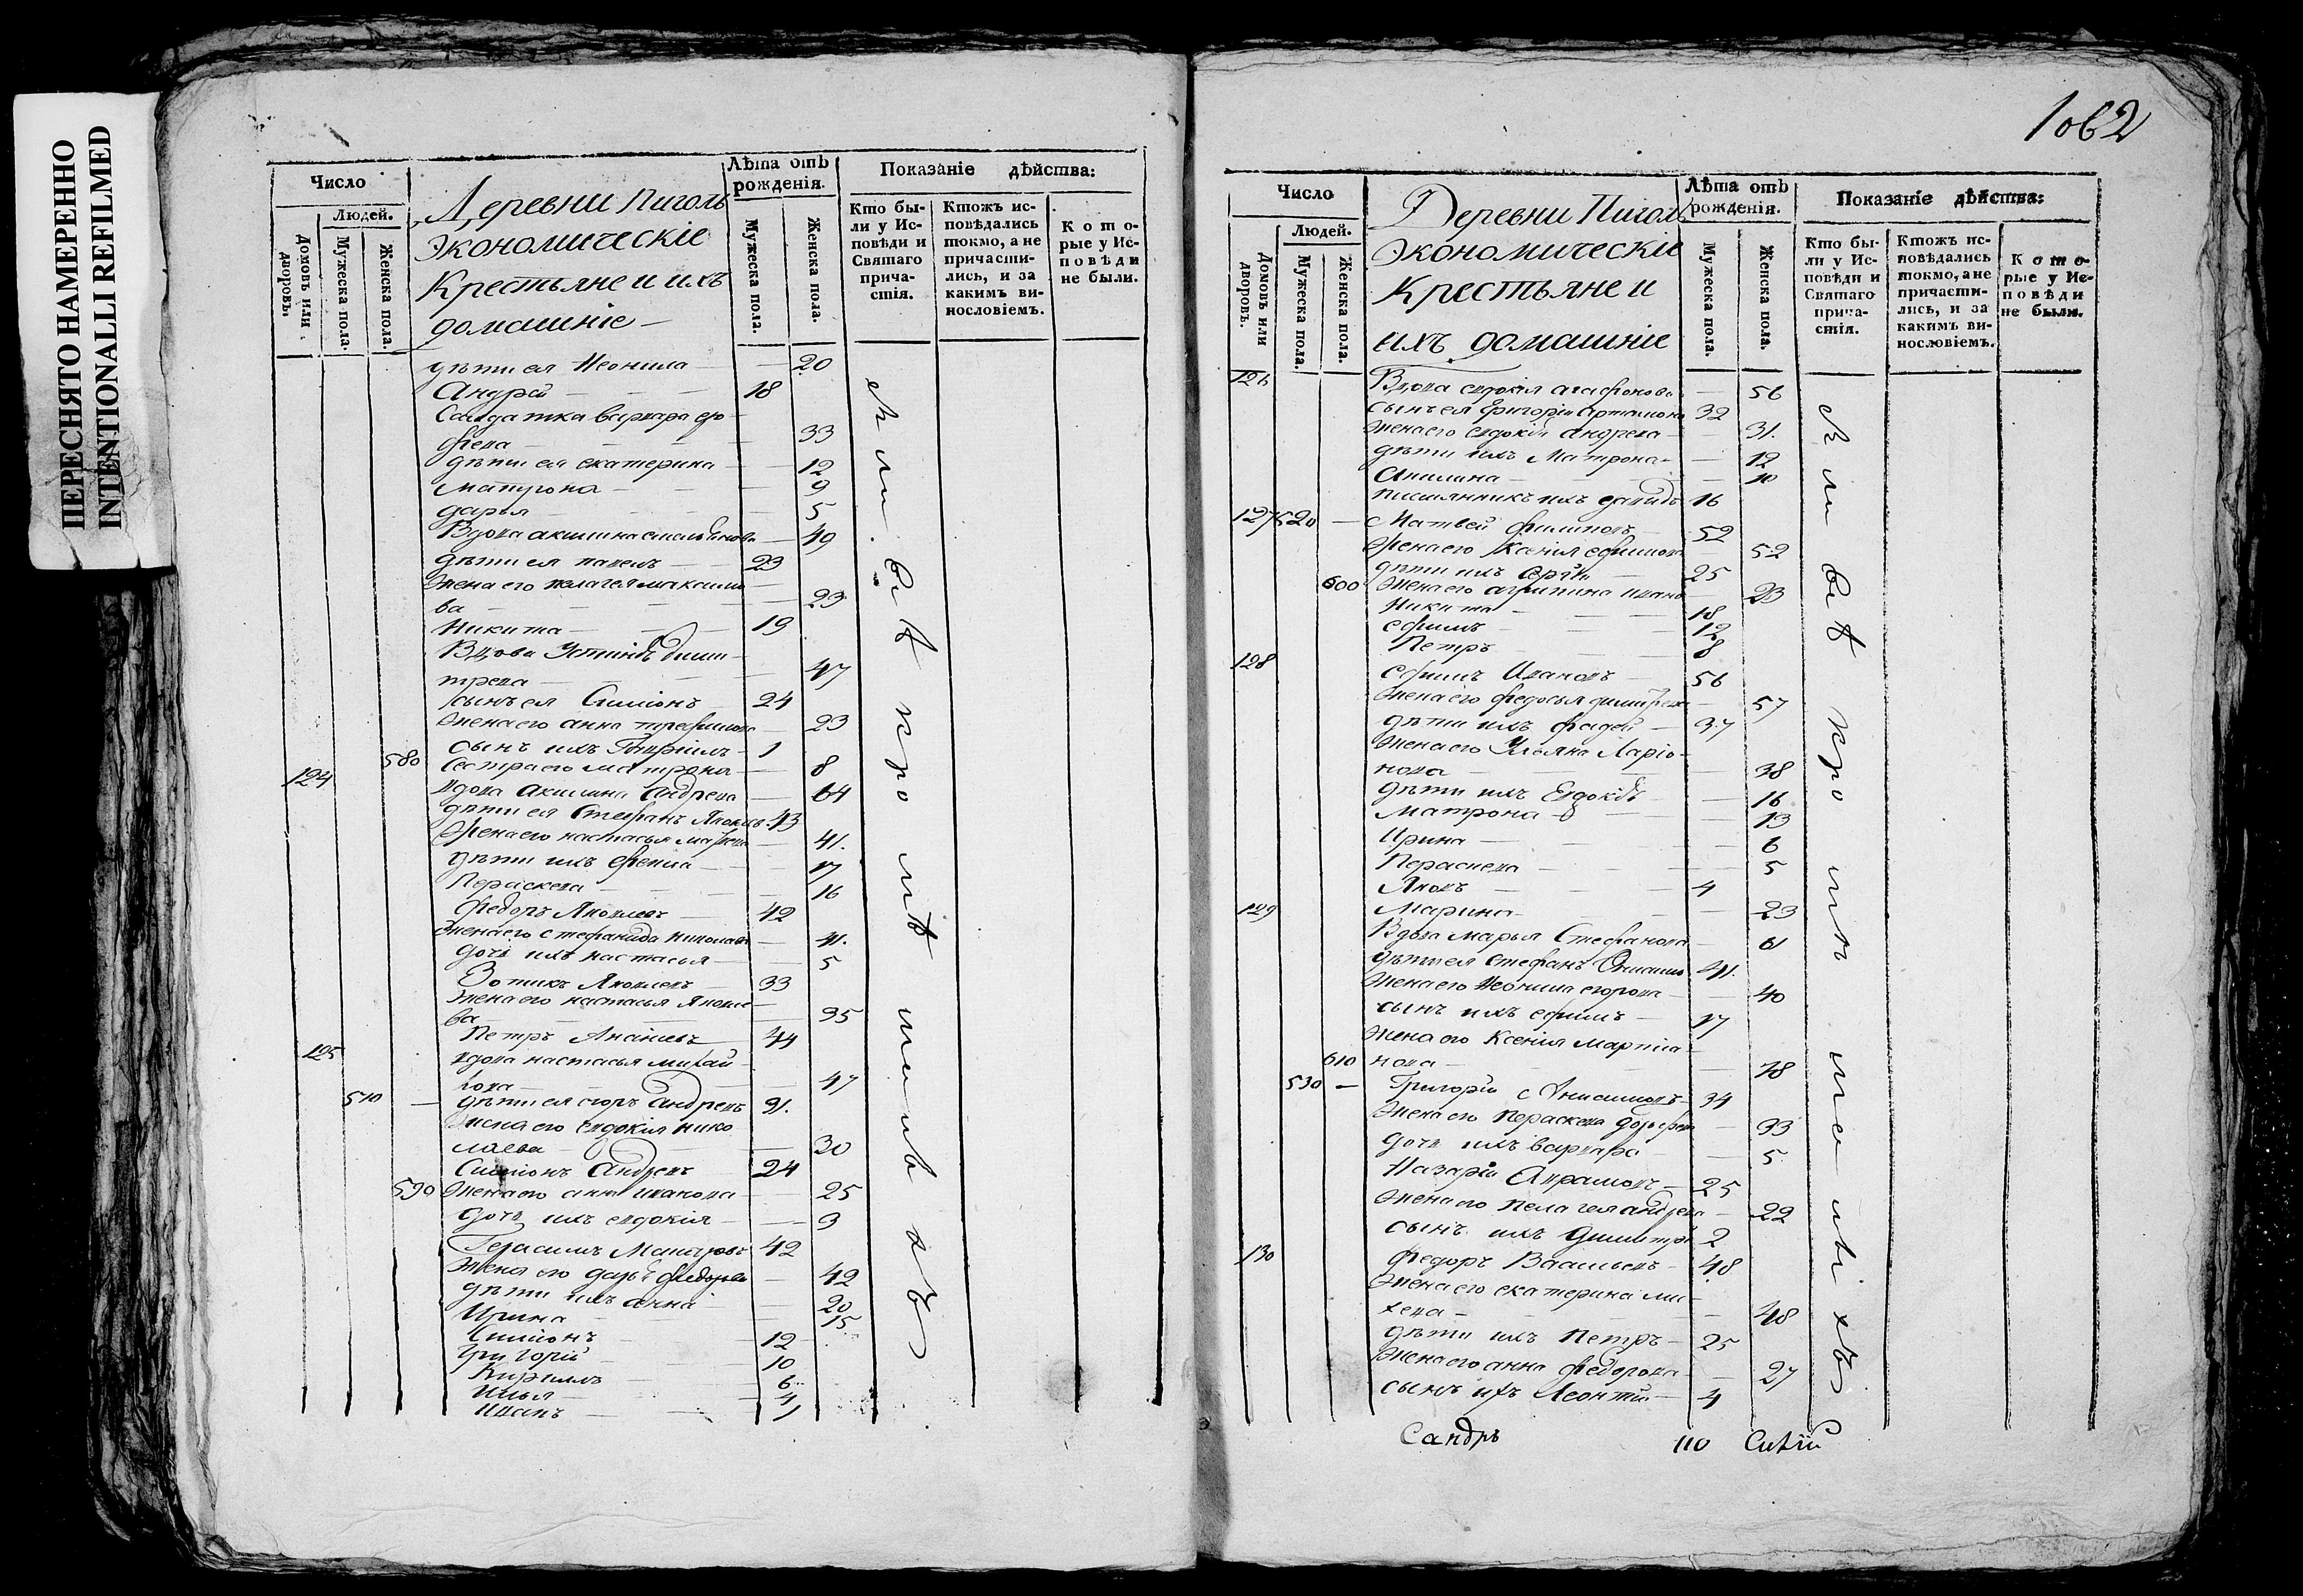 ПЕРЕСНЯТО НАМЕРЕННО
INTENTIONALLI REFILMED
Число
Людей.
Домовъ или дворовъ.
Мужеска пола.
Женска пола.
Деревни Пиголь
Экономическіе
Крестьяне и ихъ
домашніе
Лѣта отъ рожденія.
Мужеска пола.
Женска пола.
Показаніе дѣйства:
Кто были у Исповѣди и Святаго причастія.
Ктожъ исповѣдались токмо, а не причастились, и за какимъ винословіемъ.
Которые у Исповѣди не были.
дѣти ея Неонила 20
Андрей 18
Салдатка варвара
33
дѣти ея екатерина 12
матрона 9
дарья 5
Вдова акилина 49
дѣти ея павелъ 23
жена его пелагея максимо
ва 23
Никита 19
Вдова Устинья дими
трева 47
сынъ ея Симіонъ 24
жена его анна трефилова 23
сынъ ихъ Гавріилъ 1
580 Сестра его матрона 8
124 вдова акилина андрева 64
дѣти ея Стефанъ Яковлевъ 43
Жена его настасья 41.
дѣти ихъ 17
Пераскева 16
Федоръ Яковлевъ 42
Жена его стефанида николаева 41.
дочь ихъ настасья 5
Зотикъ Яковлевъ 33
жена его настасья Яковле
ва 35
Петръ Ананьевъ 44
125 вдова настасья михай
лова 47
510 — дѣти ея егоръ андревъ 31.
жена его евдокія нико
лаева 30
Симіонъ Андревъ 24
590 жена его анна иванова 25
дочь ихъ евдокія 3
Герасимъ 42
Жена его дарья федорова 42
дѣти ихъ анна 20
Ирина 15
Симіонъ 12
Григорій 10
Кирилъ 6
Илья 4
Иванъ 1
1062
Число
Людей.
Домовъ или дворовъ.
Мужеска пола.
Женска пола.
Деревни Пиголь
Экономическіе
Крестьяне и
ихъ домашніе
Лѣта отъ рожденія.
Мужеска пола.
Женска пола.
Показаніе дѣйства:
Кто были у Исповѣди и Святаго причастія.
Ктожъ исповѣдались токмо, а не причастились, и за какимъ винословіемъ.
Которые у Исповѣди не были.
126 Вдова евдокія агафонова 56
сынъ ея григорій артамоновъ 32
жена его евдокія андрева 31.
дѣти ихъ Матрона 12
Акилина 10
ихъ 16
127 520 — Матвей филиповъ 52
жена его Ксенія ефимова 52
дѣти ихъ Сергѣй 25
600 жена его агрипина иванова 23
Никита 18
ефимъ 12
Петръ 8
128 Ефимъ Ивановъ 56
жена его федосья димитрева 57
дѣти ихъ фадей 37
жена его Ульяна Ларіо
нова 38
дѣти ихъ Евдокія 16
Матрона 13
Ирина 6
Пераскева 5
Яковъ 4
129 Марина 23
Вдова марья Стефанова 61
дѣти ея стефанъ 41.
жена его Неонила егорова 40
сынъ ихъ ефимъ 17
жена его Ксенія марты
610 нова 18
530 — Григорій Анисимовъ 34
жена его пераскева 33
дочь ихъ варвара 5
Назарій Аврамовъ 25
жена его пелагея андрева 22
сынъ ихъ димитрій 2
130 Федоръ Васильевъ 48
жена его екатерина ми
хеева 48
дѣти ихъ Петръ 25
Жена его анна федорова 27
сынъ ихъ Леонтій 4
Сандръ 110